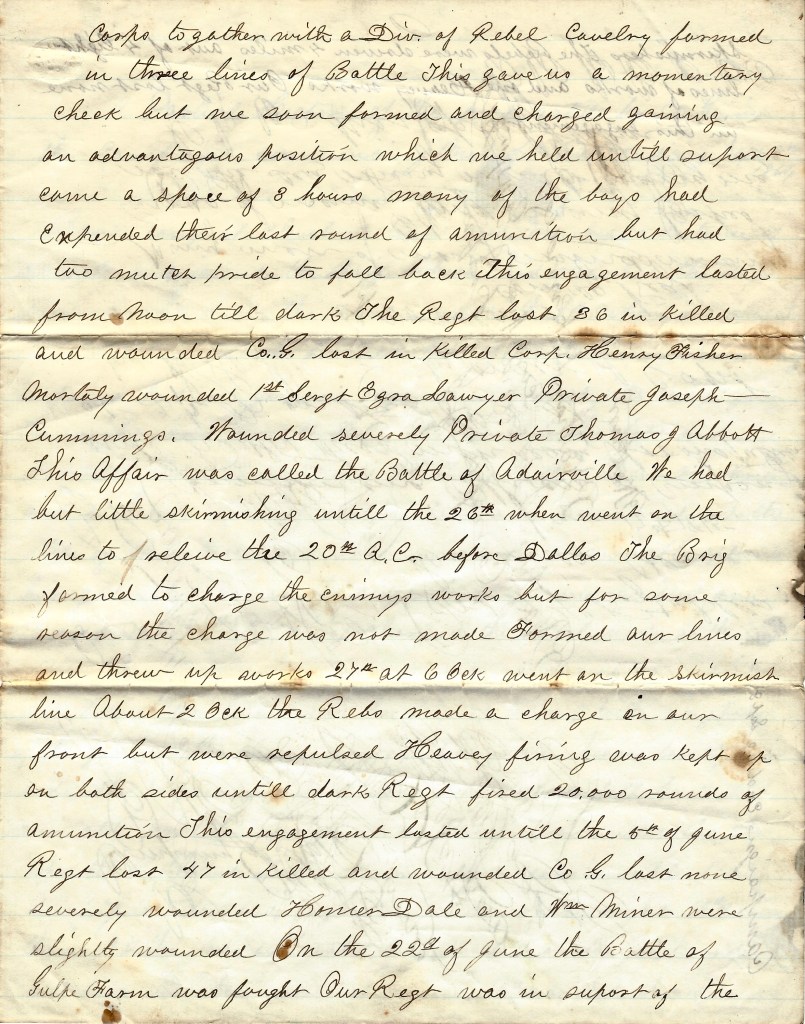 Corps togather with a Div. of Rebel Cavelry formed
in three lines of Battle This gave us a momentary
check but we soon formed and charged gaining
an advantagous position which we held untill suport
came a space of 3 hours many of the boys had
Expended their last round of amunition but had
too mutch pride to fall back This engagement lasted
from Noon till dark The Regt lost 36 in killed
and wounded Co. G. lost in killed Corp. Henry Fisher
Mortaly wounded 1st Sergt Ezra Sawyer Private Joseph
Cummings. Wounded severely Private Thomas J Abbott
This Affair was called the Battle of Adairville We had
but little skirmishing untill the 26th when went on the
lines to releive the 20th A.C. before Dallas The Brig
formed to charge the enimys works but for some
reason the charge was not made Formed our lines
and threw up works 27th at 6 Ock went on the skirmish
line About 2 Ock the Rebs made a charge in our
front but were repulsed Heavey firing was kept up
on both sides untill dark Regt fired 20.000 rounds of
amunition This engagement lasted untill the 5th of June
Regt lost 47 in killed and wounded Co G. lost none
severely wounded Homer Dale and Wm Miner were
slightly wounded On the 22d of June the Battle of
Gulpe Farm was fought Our Regt was in suport of the